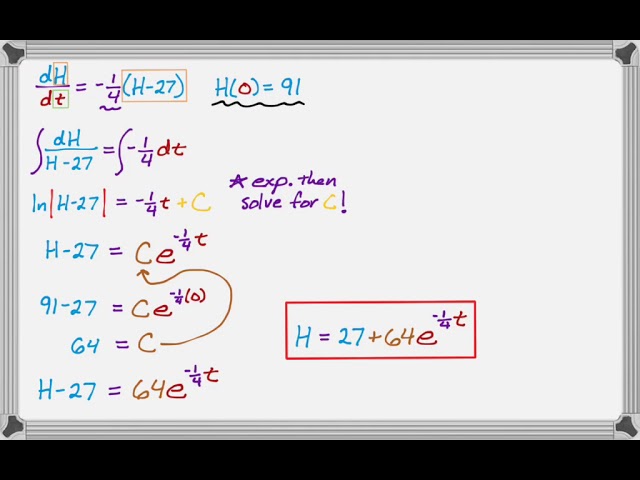 dH/dt = -1/4 (H-27)   H(0) = 91
∫ dH/(H-27) = ∫ -1/4 dt
ln|H-27| = -1/4 t + C   * exp. then solve for C!
H-27 = Ce^(-1/4 t)
91-27 = Ce^(-1/4 (0))
64 = C
H = 27 + 64e^(-1/4 t)
H-27 = 64e^(-1/4 t)